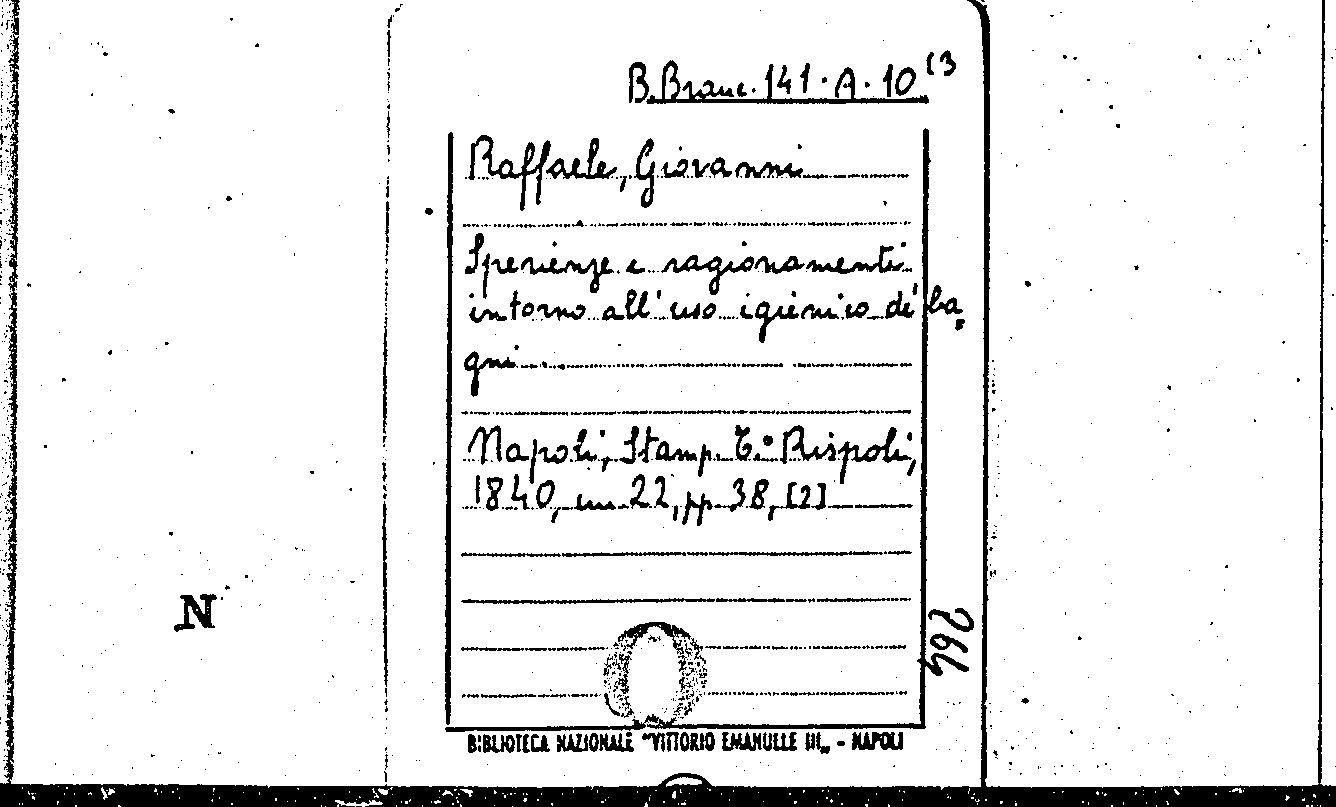 B. Branc. 141. A. 10 (3
Raffaele, Giovanni
Sperienze e ragionamenti
intorno all' uso igienico de' ba=
gni...
Napoli, Stamp. e T.º Rispoli,
1840, cm. 22, pp. 38, [2]
264
N
BIBLIOTECA NAZIONALE "VITTORIO EMANUELE III„ - NAPOLI